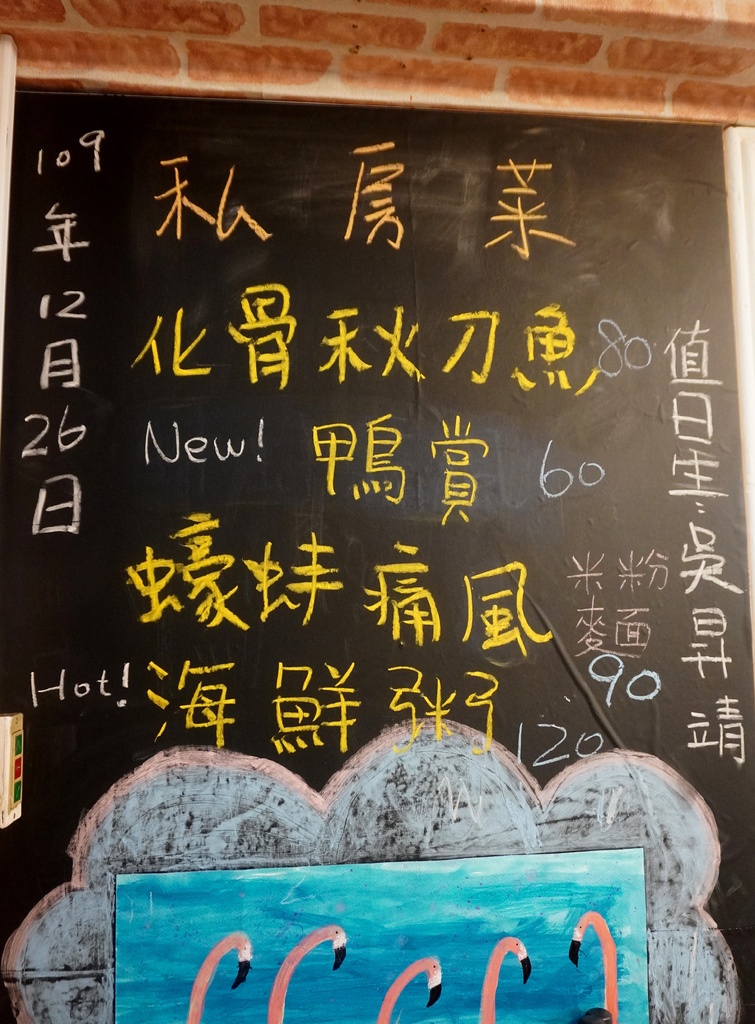 109年12月26日
私房菜
化骨秋刀魚 80
New! 鴨賞 60
蠔蚌痛風 米粉
麵 90
Hot! 海鮮粥 120
值日生:吳昇靖